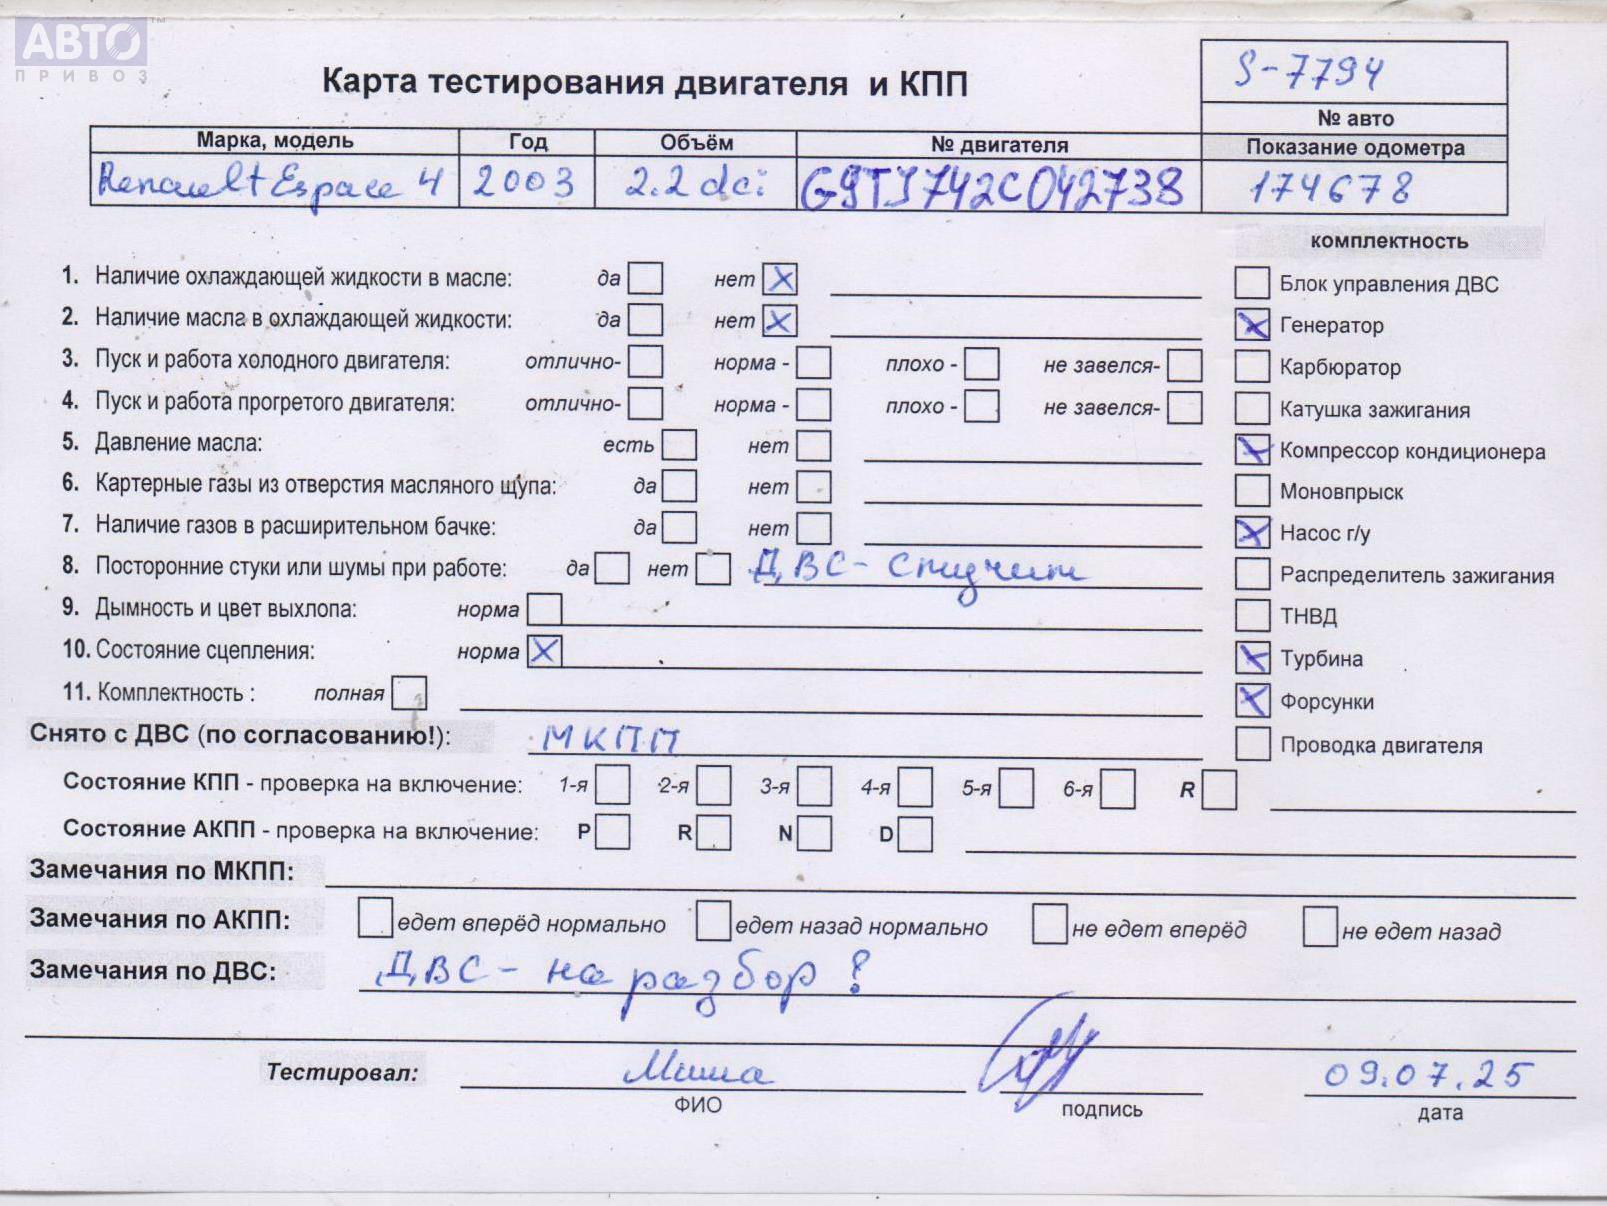 АВТО™
ПРИВОЗ
Карта тестирования двигателя и КПП
S-7794
№ авто
Марка, модель Год Объём № двигателя Показание одометра
Renault Espace 4 2003 2.2 dci G9TJ742C042738 174678
комплектность
1. Наличие охлаждающей жидкости в масле: да нет X Блок управления ДВС
2. Наличие масла в охлаждающей жидкости: да нет X X Генератор
3. Пуск и работа холодного двигателя: отлично- норма - плохо - не завелся- Карбюратор
4. Пуск и работа прогретого двигателя: отлично- норма - плохо - не завелся- Катушка зажигания
5. Давление масла: есть нет X Компрессор кондиционера
6. Картерные газы из отверстия масляного щупа: да нет Моновпрыск
7. Наличие газов в расширительном бачке: да нет X Насос г/у
8. Посторонние стуки или шумы при работе: да нет ДВС - стучит Распределитель зажигания
9. Дымность и цвет выхлопа: норма ТНВД
10. Состояние сцепления: норма X X Турбина
11. Комплектность : полная X Форсунки
Снято с ДВС (по согласованию!): МКПП Проводка двигателя
Состояние КПП - проверка на включение: 1-я 2-я 3-я 4-я 5-я 6-я R
Состояние АКПП - проверка на включение: P R N D
Замечания по МКПП:
Замечания по АКПП: едет вперёд нормально едет назад нормально не едет вперёд не едет назад
Замечания по ДВС: ДВС - на разбор !
Тестировал: Миша 09.07.25
ФИО подпись дата